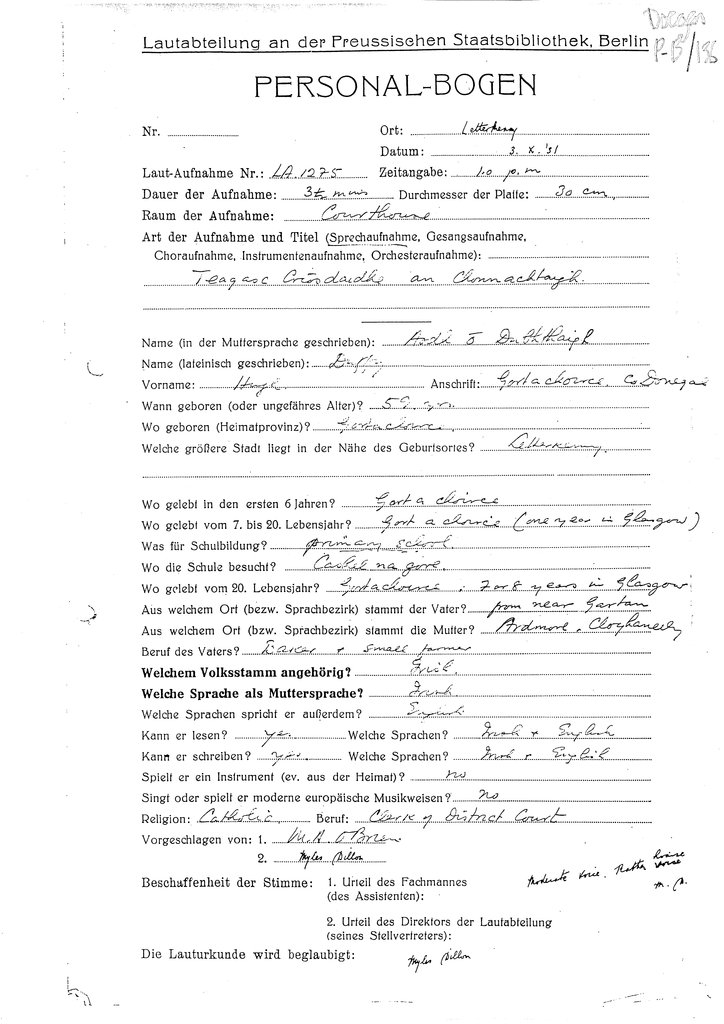 P-B/136
Lautabteilung an der Preussischen Staatsbibliothek, Berlin
PERSONAL-BOGEN
Nr. Ort: Letterkenny
Datum: 3. X. '31
Laut-Aufnahme Nr.: LA. 1275 Zeitangabe: 1.0 p.m
Dauer der Aufnahme: 3½ mins Durchmesser der Platte: 30 cm.
Raum der Aufnahme: Courthouse
Art der Aufnahme und Titel (Sprechaufnahme, Gesangsaufnahme,
Choraufnahme, Instrumentenaufnahme, Orchesteraufnahme):
Teagasc Críosdaidhe an Chonnachtaigh.
Name (in der Muttersprache geschrieben): Aodh Ó Dubhthaigh
Name (lateinisch geschrieben): Duffy
Vorname: Hugh Anschrift: Gortachoirce, Co Donegal
Wann geboren (oder ungefähres Alter)? 59 yrs.
Wo geboren (Heimatprovinz)? Gortachoirce.
Welche größere Stadt liegt in der Nähe des Geburtsortes? Letterkenny.
Wo gelebt in den ersten 6 Jahren? Gort a choirce
Wo gelebt vom 7. bis 20. Lebensjahr? Gort a choirce (one year in Glasgow)
Was für Schulbildung? primary school.
Wo die Schule besucht? Cashel na gore.
Wo gelebt vom 20. Lebensjahr? Gortachoirce; 7 or 8 years in Glasgow
Aus welchem Ort (bezw. Sprachbezirk) stammt der Vater? from near Gartan
Aus welchem Ort (bzw. Sprachbezirk) stammt die Mutter? Ardmore, Cloghaneely
Beruf des Vaters? Baker + small farmer
Welchem Volksstamm angehörig? Irish.
Welche Sprache als Muttersprache? Irish
Welche Sprachen spricht er außerdem? English
Kann er lesen? yes. Welche Sprachen? Irish + English
Kann er schreiben? yes. Welche Sprachen? Irish + English
Spielt er ein Instrument (ev. aus der Heimat)? no
Singt oder spielt er moderne europäische Musikweisen? no
Religion: Catholic. Beruf: Clerk of District Court
Vorgeschlagen von: 1. M. A. O'Brien
2. Myles Dillon
Beschaffenheit der Stimme: 1. Urteil des Fachmannes
(des Assistenten): Moderate voice. Rather hoarse voice
M. D.
2. Urteil des Direktors der Lautabteilung
(seines Stellvertreters):
Die Lauturkunde wird beglaubigt: Myles Dillon